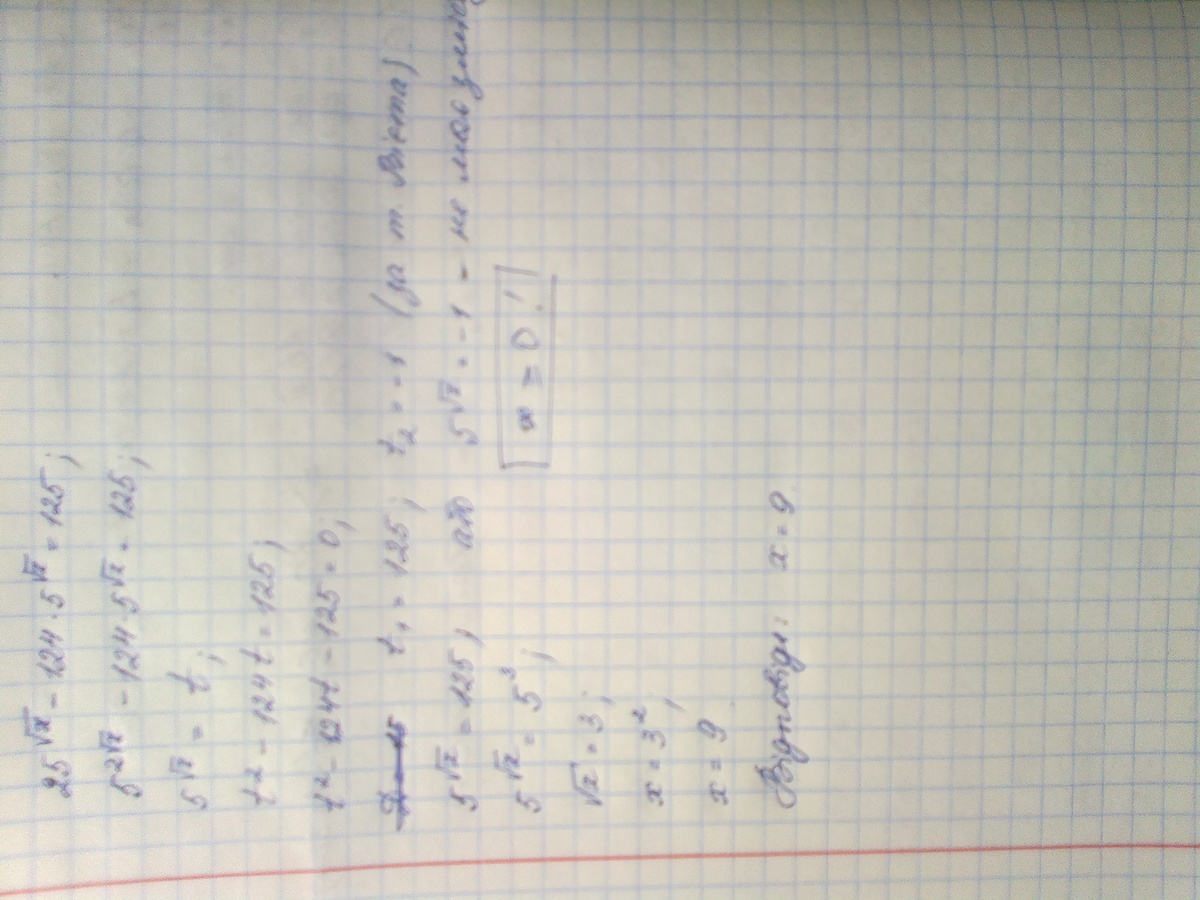 25^√x - 124 · 5^√x = 125;
5^2√x - 124 · 5^√x = 125;
5^√x = t;
t² - 124t = 125;
t² - 124t - 125 = 0;
t₁ = 125; t₂ = -1 (за т. Вієта)
5^√x = 125; або 5^√x = -1 - не має
5^√x = 5³; x ≥ 0!
√x = 3;
x = 3²;
x = 9
Відповідь: x = 9